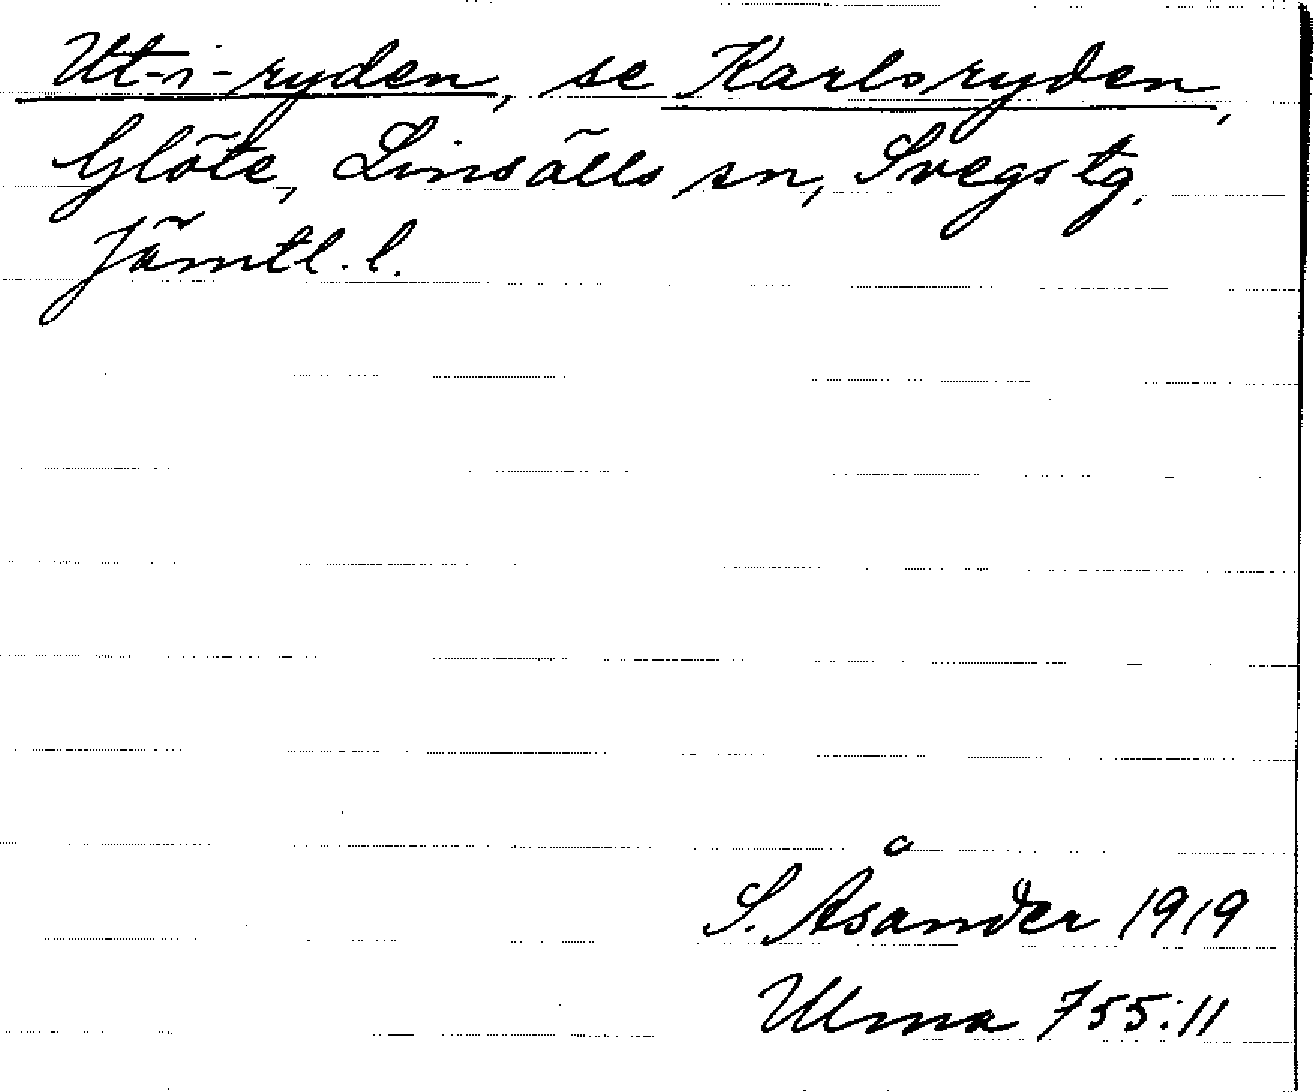 Ut-i-ryden, se Karlsryden,
Glöte, Linsälls sn, Svegs tg.
Jämtl. l.
S. Åsander 1919
Ulma 755:11